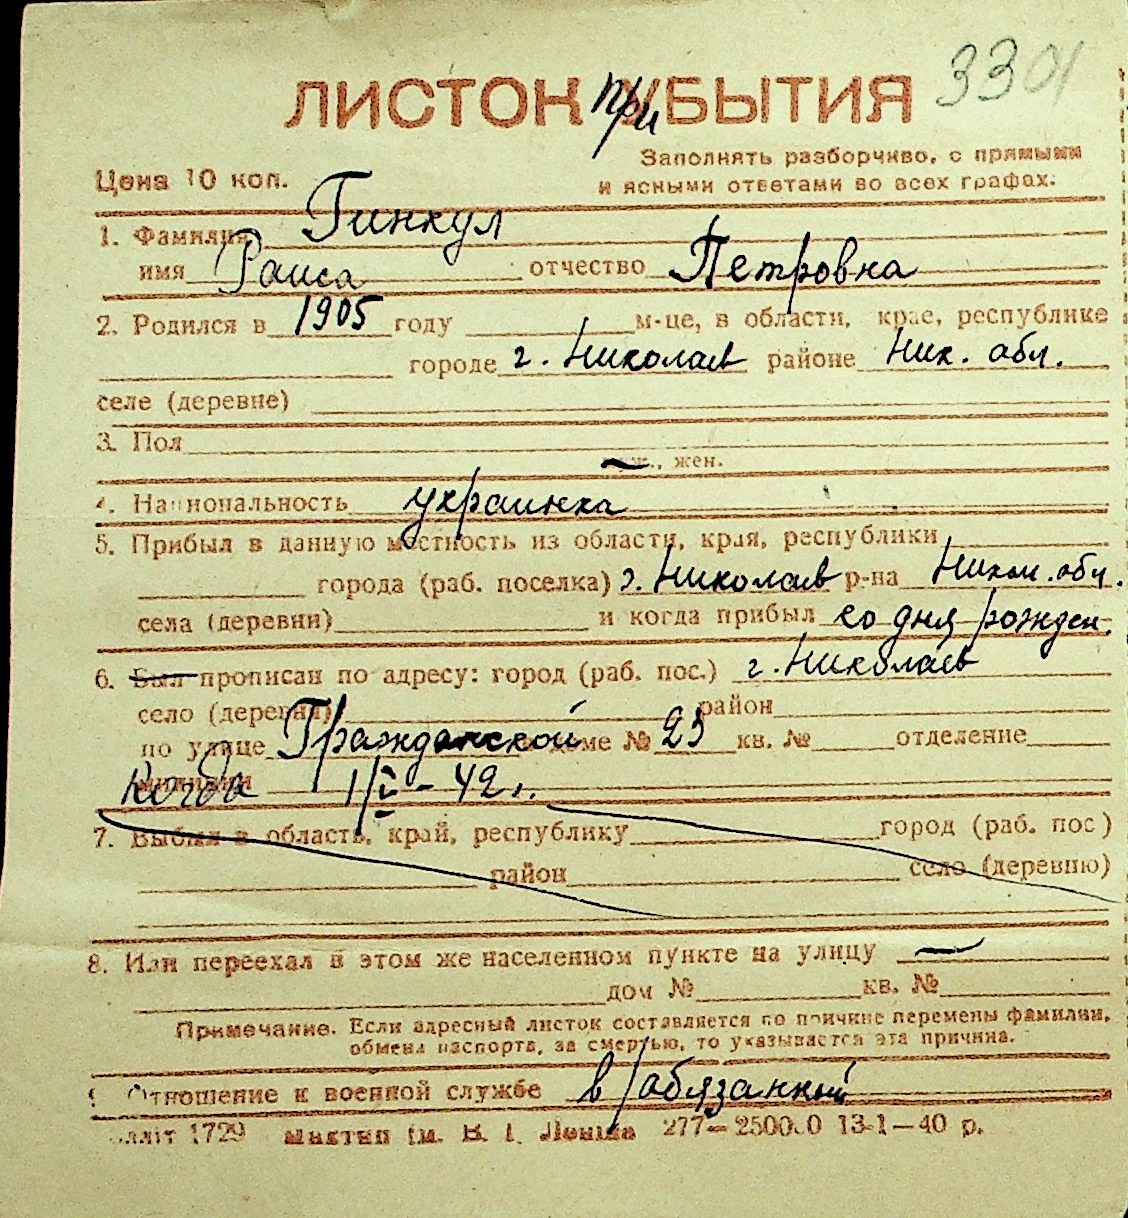 3301
ЛИСТОК ПриБЫТИЯ
Заполнять разборчиво, с прямыми
Цена 10 коп.
и ясными ответами во всех графах.
1. Фамилия Гинкул
имя Раиса отчество Петровна
2. Родился в 1905 году м-це, в области, крае, республике
городе г. Николаев районе Ник. обл.
селе (деревне)
3. Пол
жен.
4. Национальность украинка
5. Прибыл в данную местность из области, края, республики
города (раб. поселка) г. Николаев р-на Никол. обл.
села (деревни) и когда прибыл со дня рожден.
6. Был прописан по адресу: город (раб. пос.) г. Николаев
село (деревня) район
по улице Гражданской доме № 23 кв. № отделение
Когда 1/I - 42 г.
7. Выбыл в область, край, республику город (раб. пос)
район село (деревню)
8. Или переехал в этом же населенном пункте на улицу —
дом № кв. №
Примечание. Если адресный листок составляется по причине перемены фамилии,
обмена паспорта, за смертью, то указывается эта причина.
9. Отношение к военной службе в/обязанный
1729 Ім. В. І. Леніна 277—250000 13-1—40 р.